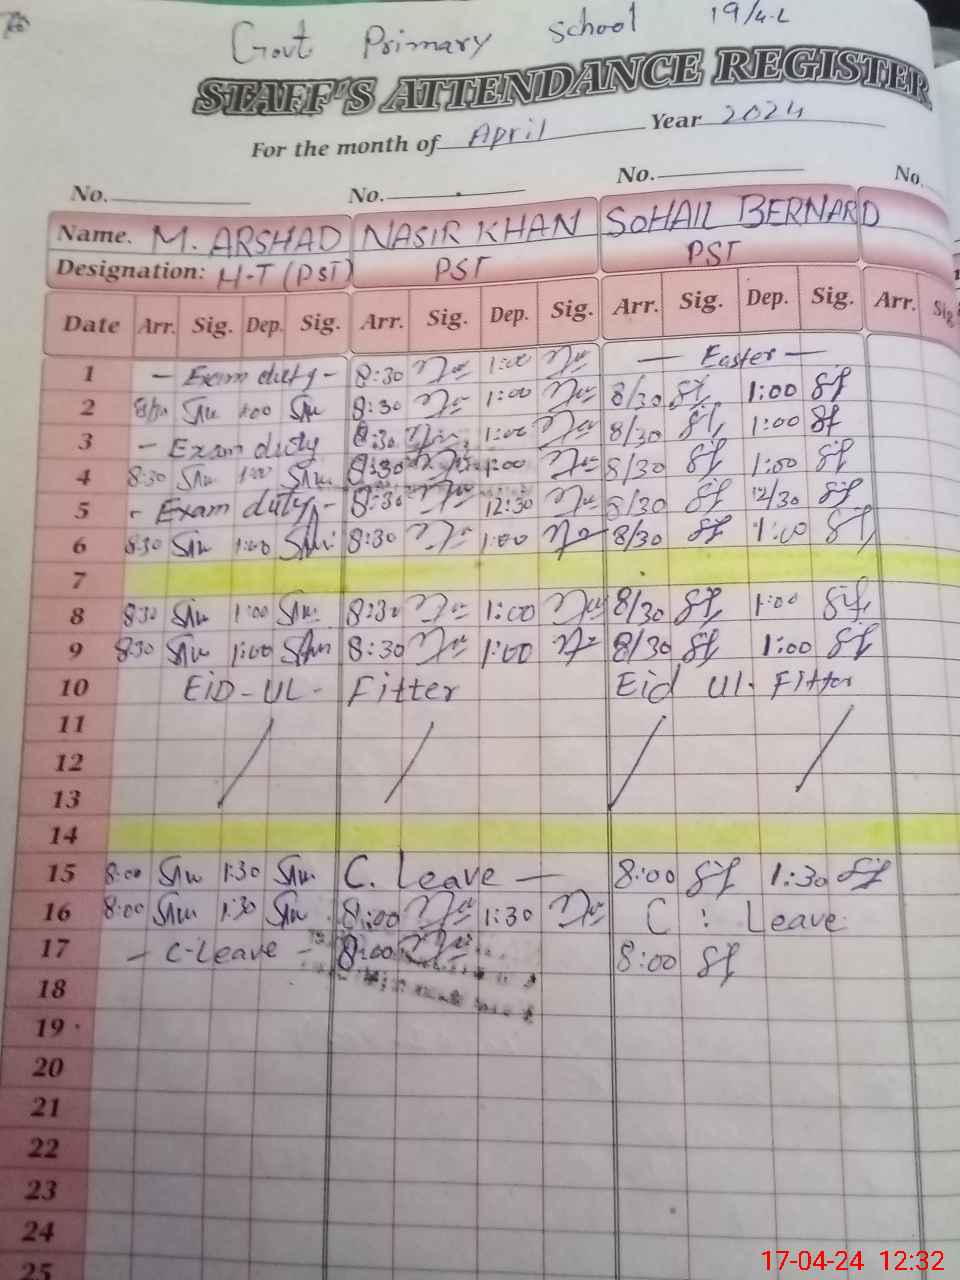 Govt Primary School 19/4-L
STAFF'S ATTENDANCE REGISTER
For the month of April Year 2024
No. No. No. No.
Name. M. ARSHAD NASIR KHAN SOHAIL BERNARD
Designation: H-T (PST) PST PST
Date Arr. Sig. Dep. Sig. Arr. Sig. Dep. Sig. Arr. Sig. Dep. Sig. Arr. Sig
1 - Exam duty - 8:30 1:00 — Easter —
2 8:30 1:00 8/30 1:00
3 - Exam duty 8:30 1:00 8/30 1:00
4 8:30 1:00 8:30 1:00 8/30 1:00
5 - Exam duty - 8:30 12:30 8/30 12/30
6 8:30 1:00 8:30 1:00 8/30 1:00
7
8 8:30 1:00 8:30 1:00 8/30 1:00
9 8:30 1:00 8:30 1:00 8/30 1:00
10 EiD-UL- Fitter Eid Ul. Fitter
11
12
13
14
15 8:00 1:30 C. Leave — 8:00 1:30
16 8:00 1:30 8:00 1:30 C : Leave
17 - C-Leave - 8:00 8:00
18
19
20
21
22
23
24
25
17-04-24 12:32